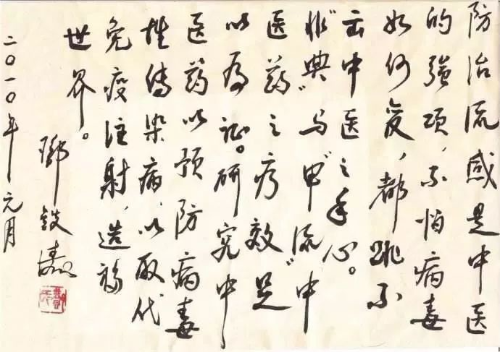 防治流感是中医
的强项，不怕病毒
如何变，都跳不
出中医之手心。
“非典”与“甲流”中
医药之疗效足
以为证。研究中
医药以预防病毒
性传染病，以取代
免疫注射，造福
世界。
邓铁涛
二〇一〇年元月